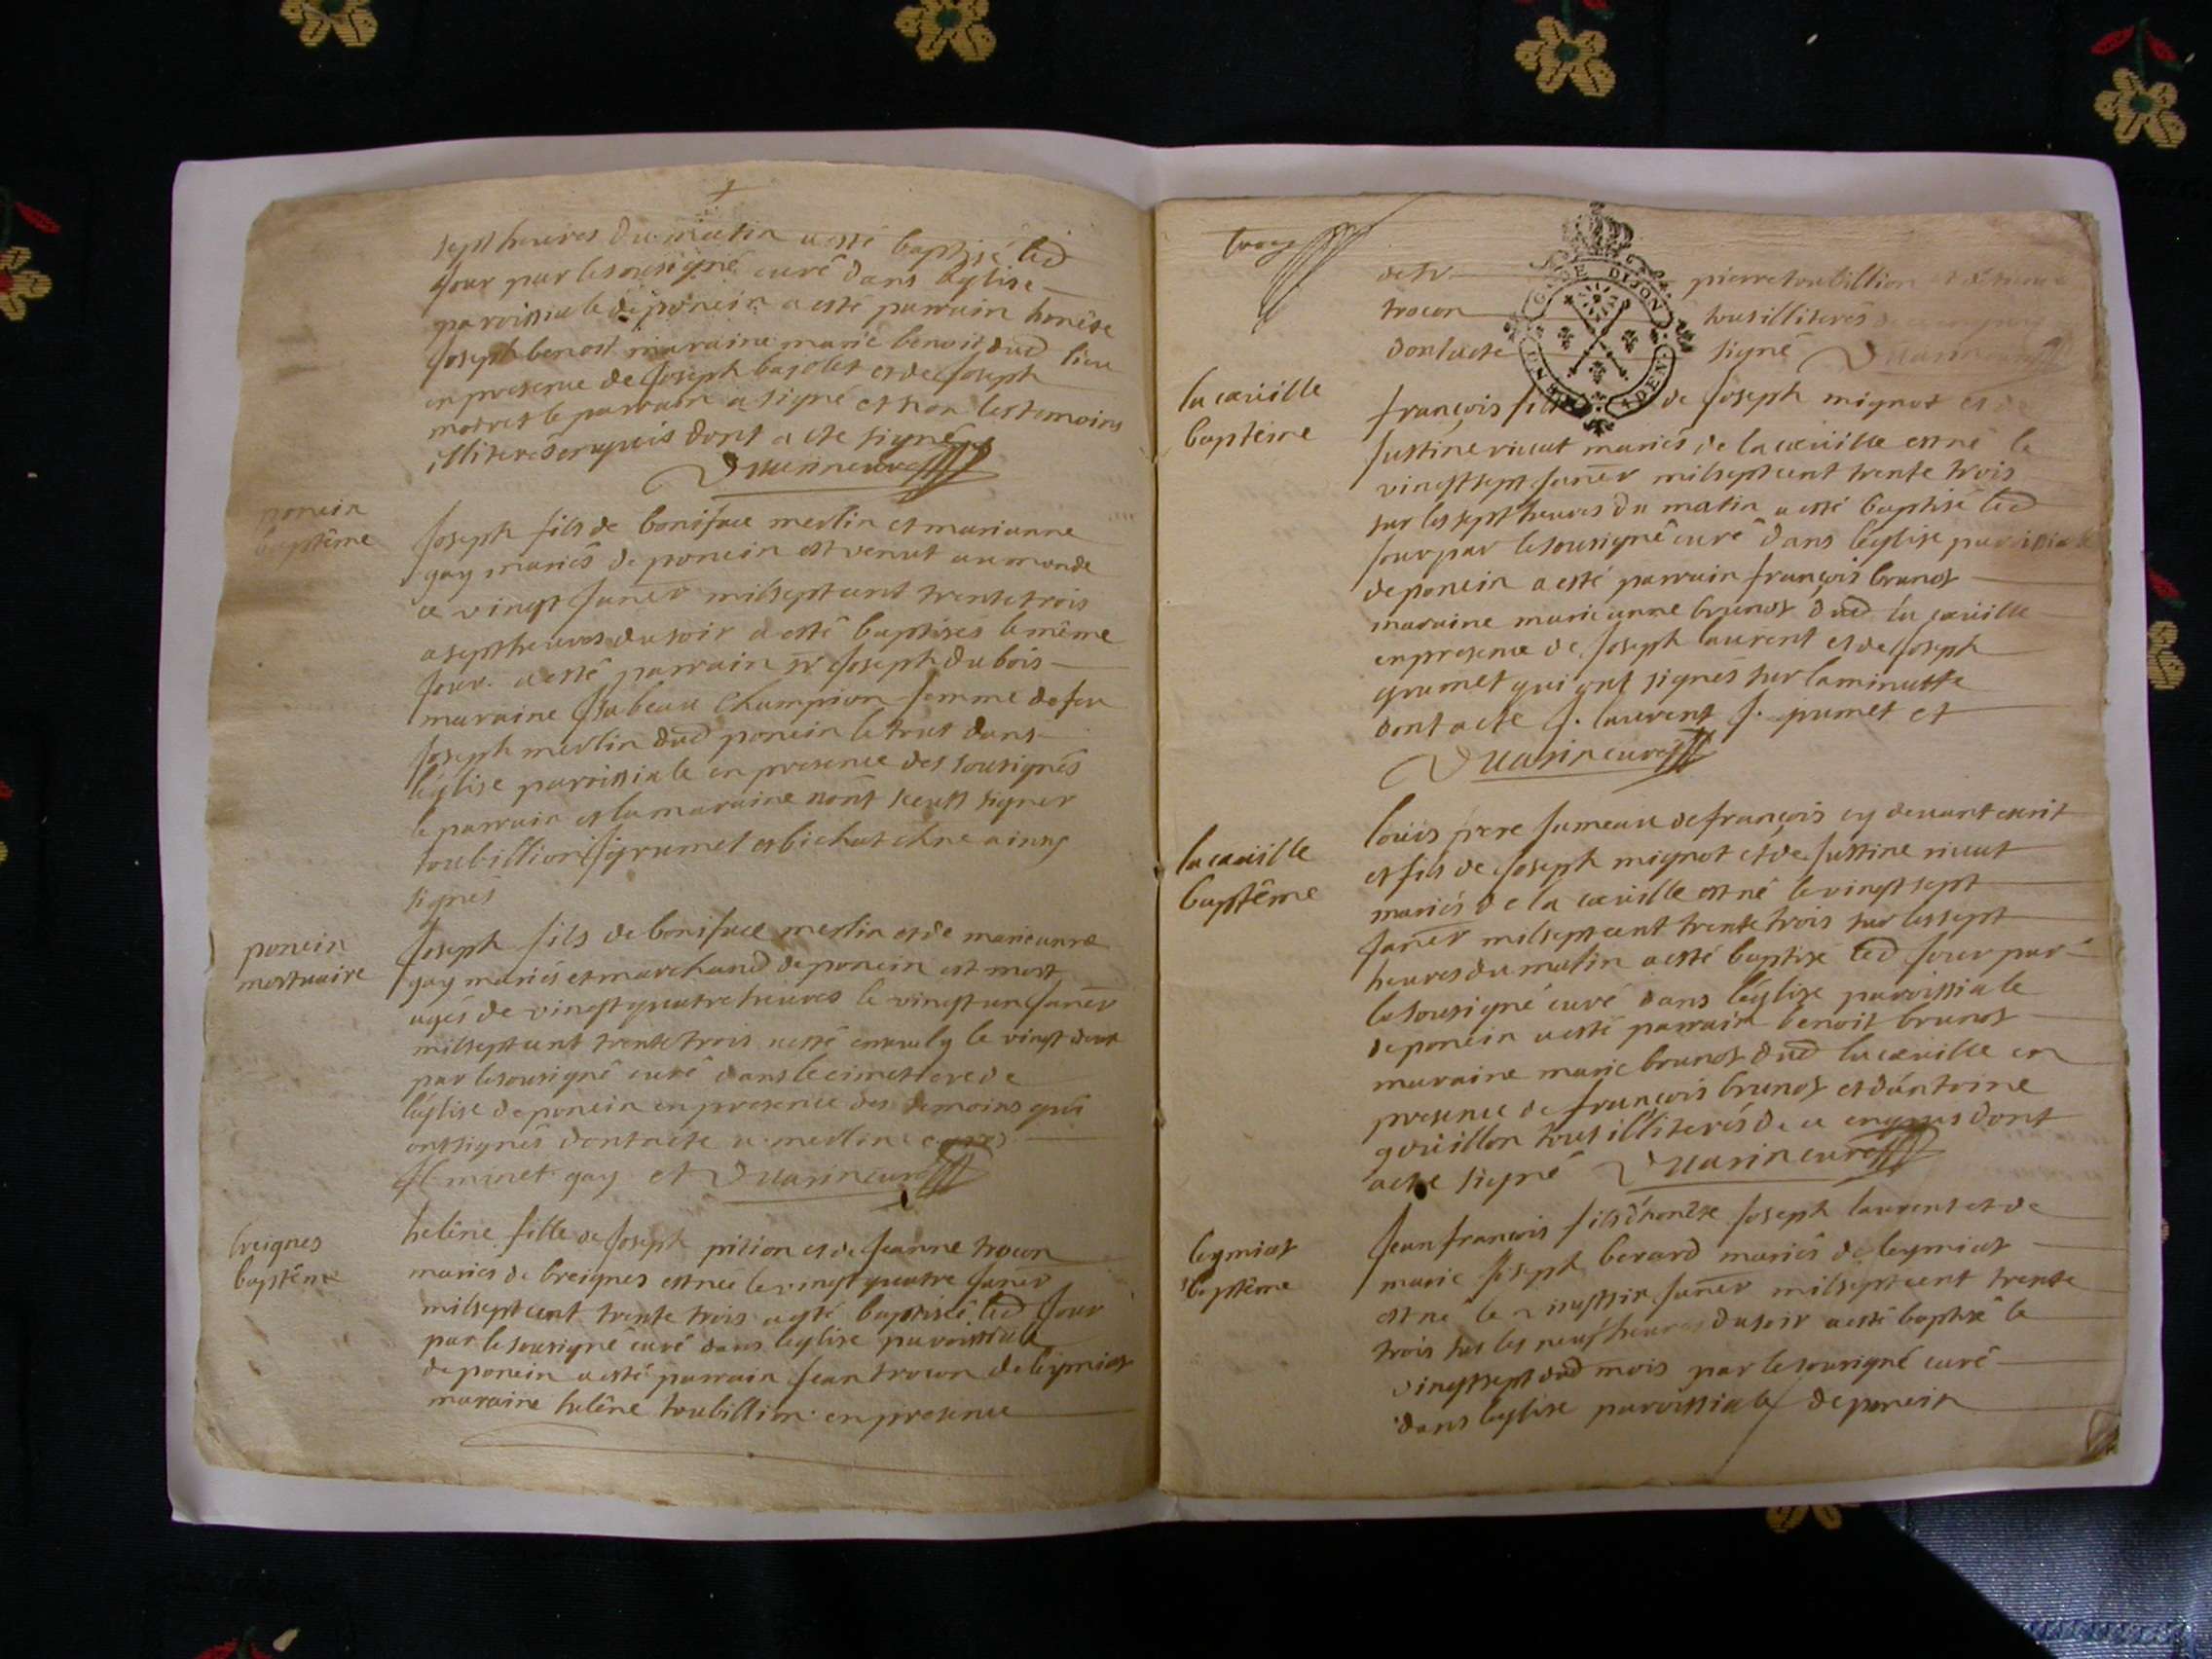 sept heures du matin a esté baptisé led
jour par le sousigné curé dans leglise
paroissiale de poncin a esté parrain honête
joseph benoit maraine marie benoit dud lieu
en presence de joseph bajolet et de joseph
motret le parrain a signé et non les temoins
illiterés enquis dont acte signé
Vuarin curé
poncin
baptême
joseph fils de boniface merlin et marianne
gay mariés de poncin est venut au monde
ce vingt janer mil sept cent trente trois
a sept heures du soir a esté baptisés le même
jour a esté parrain sr joseph dubois
maraine jsabeau champion femme de feu
joseph merlin dud poncin le tout dans
léglise paroissiale en presence des sousignés
le parrain et la maraine nont sceust signer
toubillion j grumet et bichat ainsy
signés
poncin
mortuaire
joseph fils de boniface merlin et de marieanne
gay mariés et marchand de poncin est mort
agés de vingt quatre heures le vingt un janer
mil sept cent trente trois a esté le vingt deux
par le sousigné curé dans le cimettere de
léglise de poncin en presence des temoins qui
ont signés dont acte merlin
minet gay et Vuarin curé
breignes
baptême
helêne fille de joseph pition et de jeanne trocon
mariés de breignes est née le vingt quatre janer
mil sept cent trente trois a esté baptisée led jour
par le sousigné curé dans leglise paroissiale
de poncin a esté parrain jean trocon de leymiat
maraine helêne toubillion en presence
troy
de pierre toubillion et
trocon tous illiterés
dont acte signé Vuarin
G. DE DIJON
la cœuille
baptême
françois fils de joseph mignot et de
justine riccat mariés de la cœuille est né le
vingt sept janer mil sept cent trente trois
sur les sept heures du matin a esté baptisé led
jour par le sousigné curé dans léglise paroissiale
de poncin a esté parrain françois brunot
maraine marieanne brunot dud la cœuille
en presence de joseph laurent et de joseph
grumet qui ont signés sur la minutte
dont acte j. laurent j. grumet et
Vuarin curé
la cœuille
baptême
loüis frere jumeau de françois cy devant escrit
et fils de joseph mignot et de justine riccat
mariés de la cœuille est né le vingt sept
janer mil sept cent trente trois sur les sept
heures du matin a esté baptisé led jour par
le sousigné curé dans léglise paroissiale
de poncin a esté parrain benoit brunot
maraine marie brunot dud la cœuille en
presence de françois brunot et dántoine
goüillon tous illiterés de ce enquis dont
acte signé Vuarin curé
leymiat
baptême
jean françois fils dhonête joseph laurent et de
marie joseph berard mariés de leymiat
est né le vingt six janer mil sept cent trente
trois sur les neuf heures du soir a esté baptisé le
vingt sept dud mois par le sousigné curé
dans leglise paroissiale de poncin